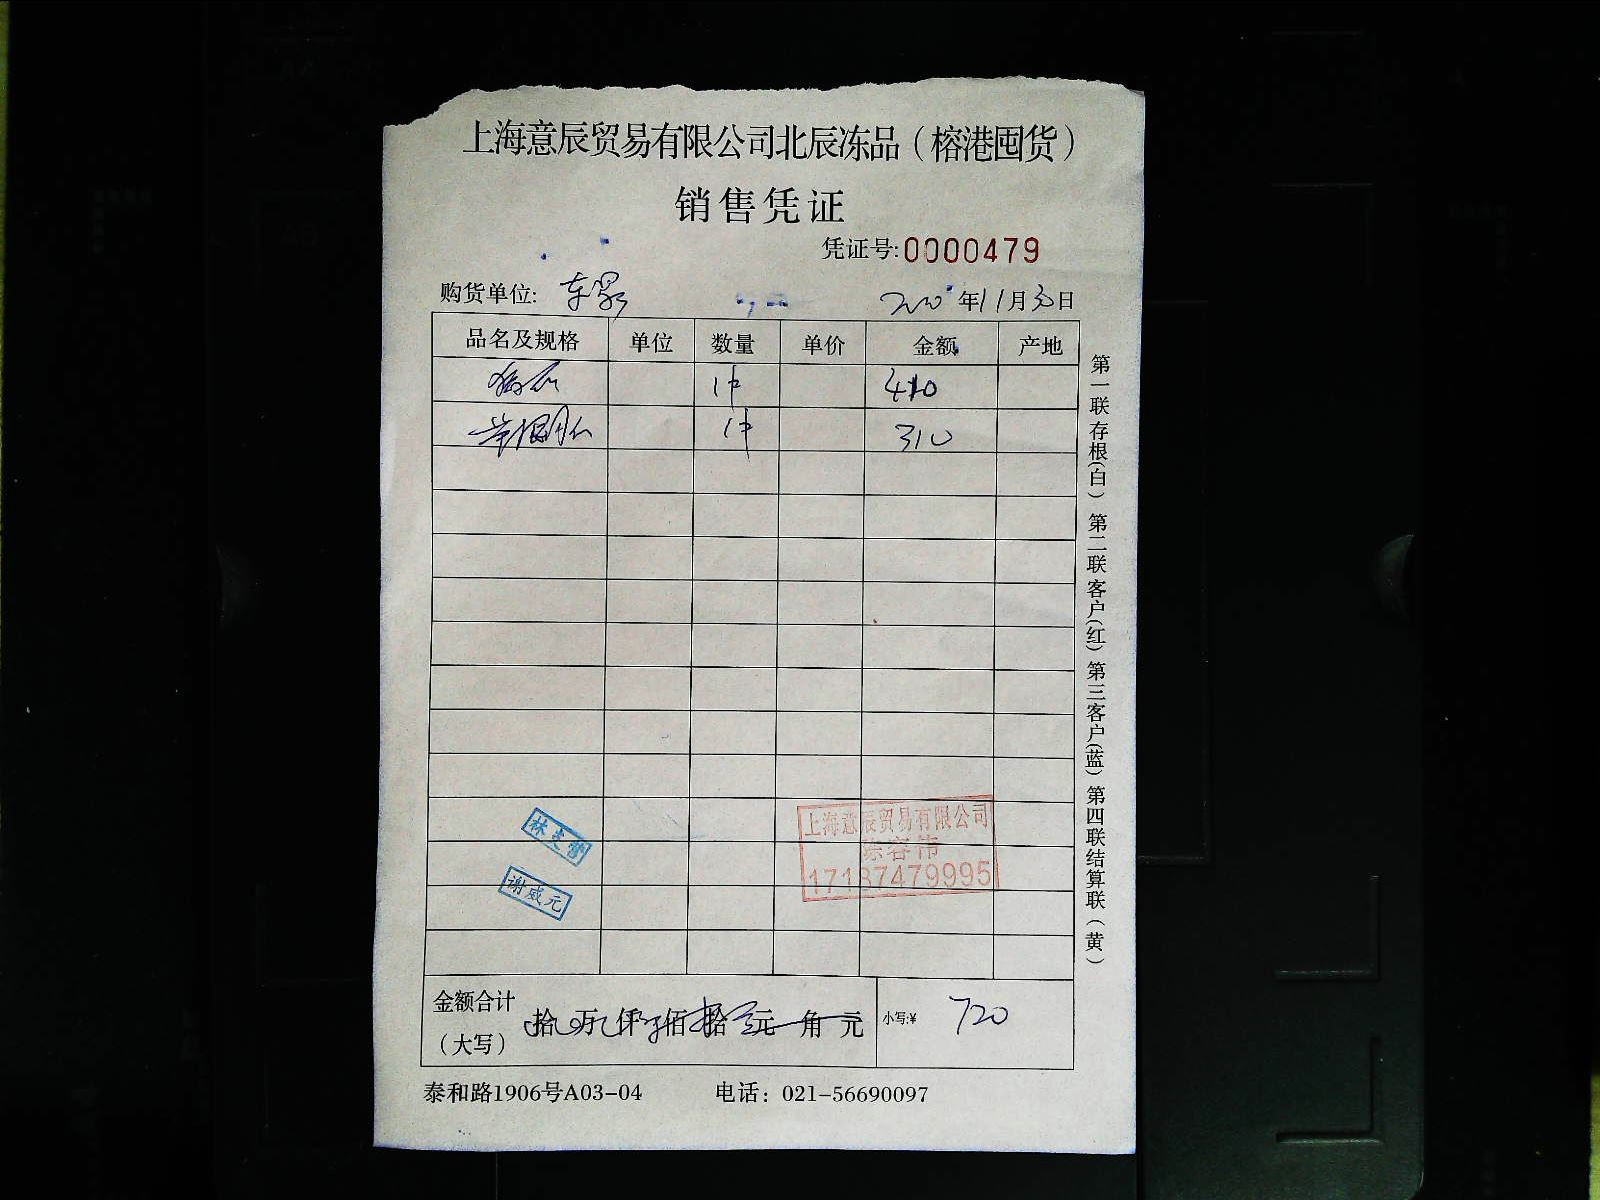 上海意辰贸易有限公司北辰冻品（榕港囤货）
销售凭证
凭证号:0000479
购货单位:
年11月30日
品名及规格 单位 数量 单价 金额 产地
1件 410
1件 310
第一联存根(白) 第二联客户(红) 第三客户(蓝) 第四联结算联(黄)
林文
谢威元
上海意辰贸易有限公司
陈容伟
17137479995
金额合计
（大写） 拾 万 仟 佰 拾 元 角 元 小写:¥ 720
泰和路1906号A03-04 电话：021-56690097